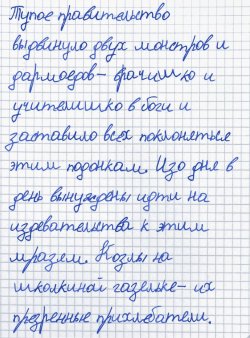 Тупое правительство
выдвинуло двух монстров и
дармоедов - врачишкю и
учителишко в боги и
заставило всех поклоняться
этим подонкам. Изо дня в
день вынуждены идти на
издевательства к этим
мразям. Козлы на
школкиной газельке - их
презренные прихлебатели.